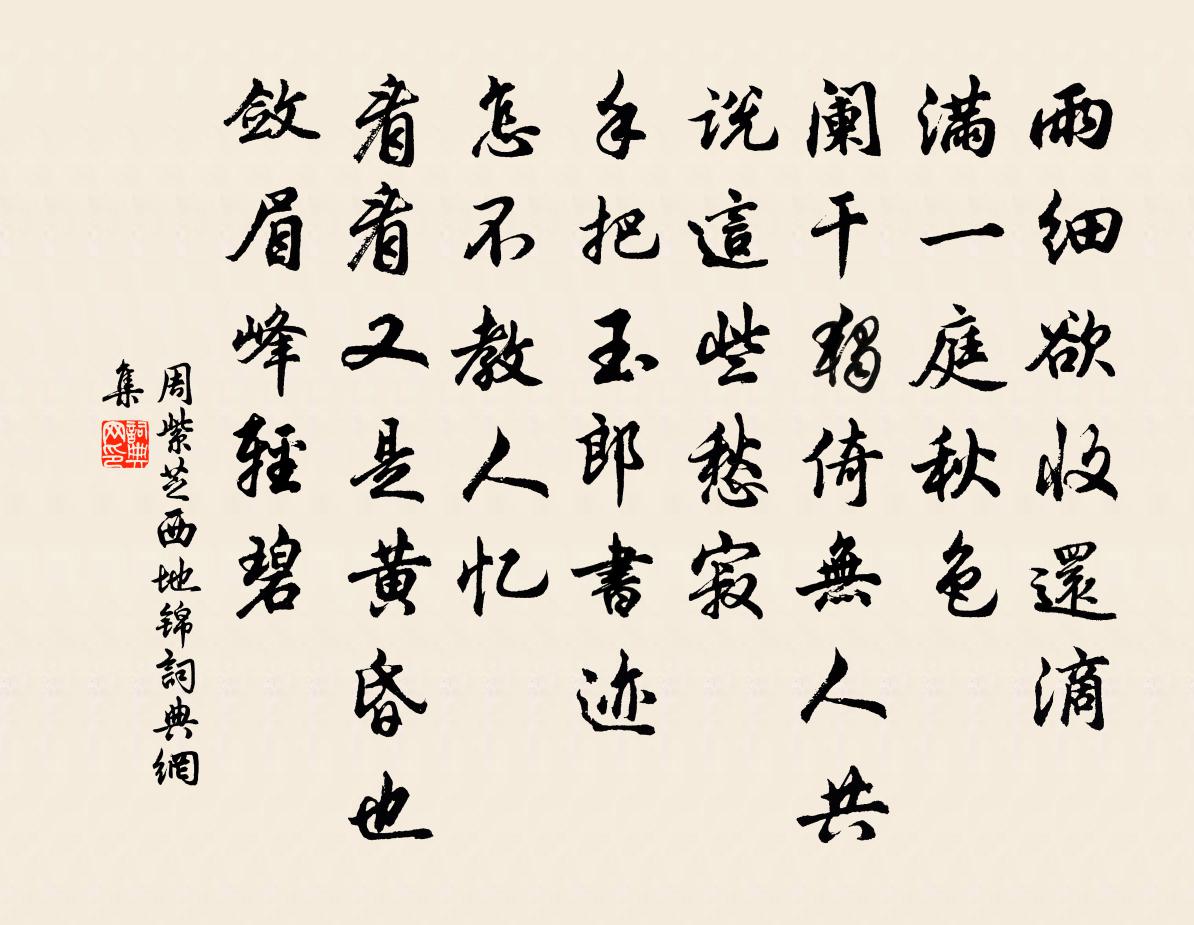 雨细欲收還滴
滿一庭秋色
阑干獨倚無人共
说這些愁寂
手把玉郎書迹
怎不教人忆
看看又是黄昏也
敛眉峰輕碧
周紫芝西地锦詞典網
集
詞典
网印